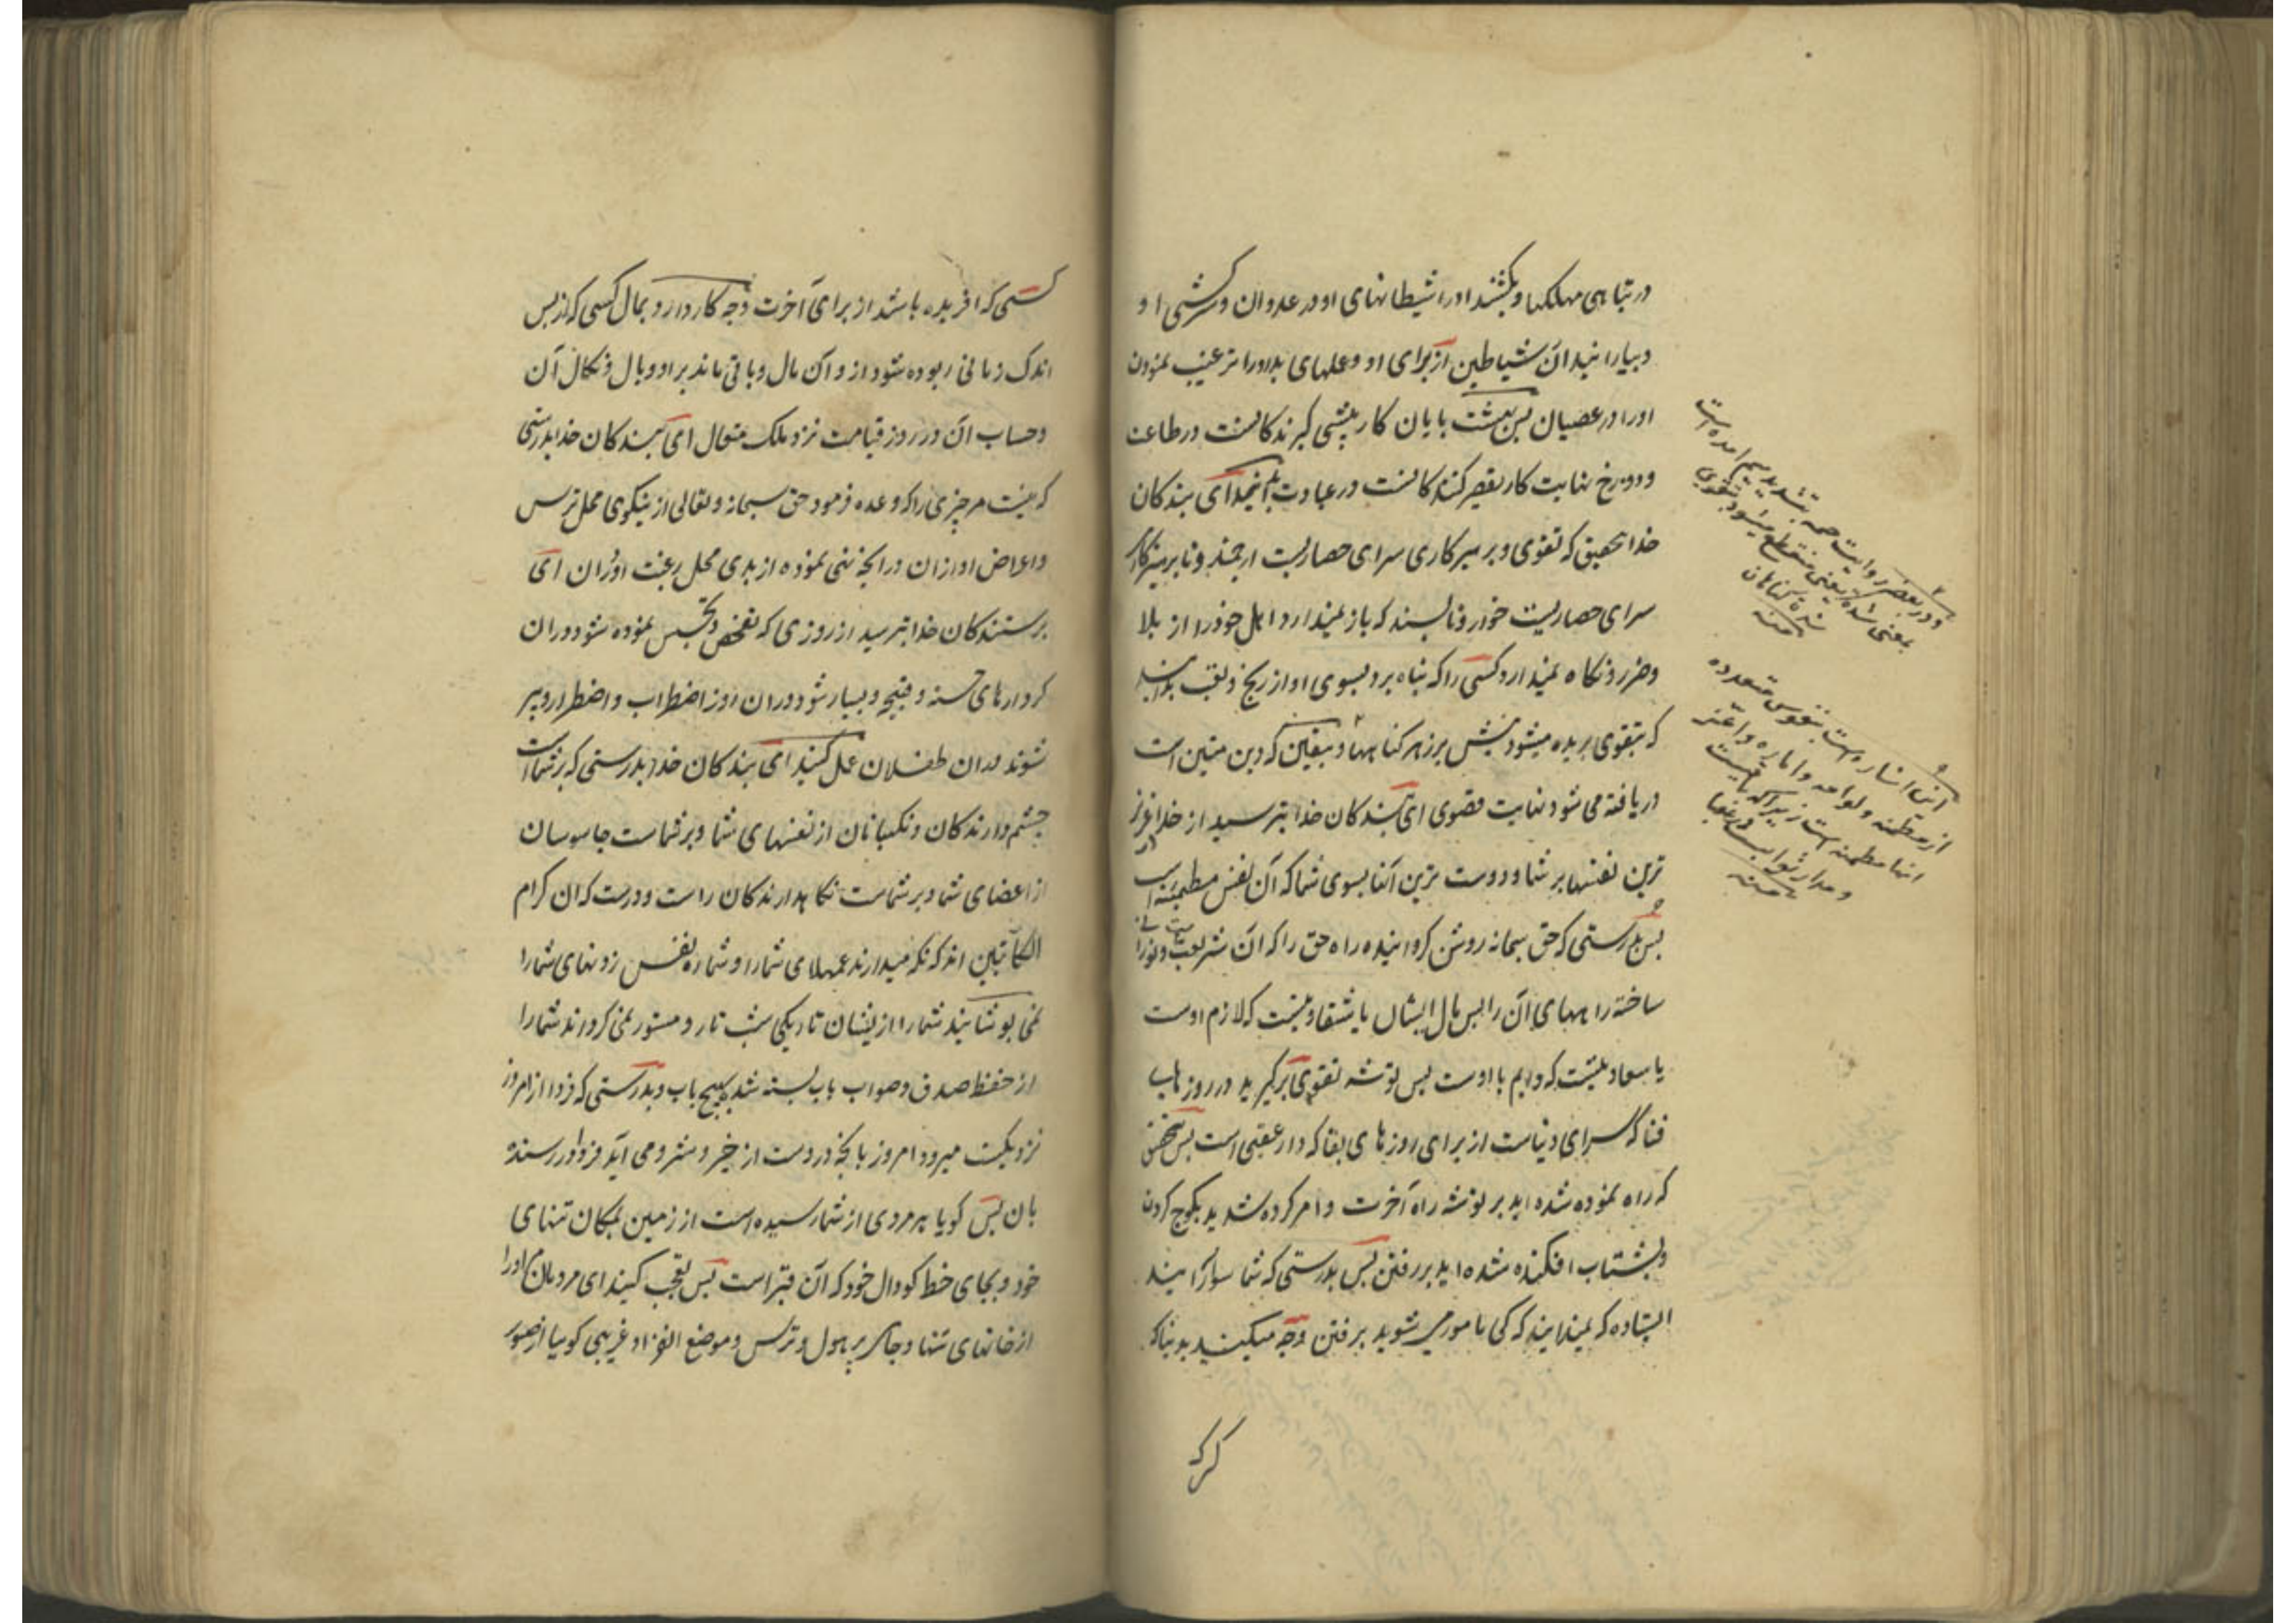 در تباهی مهلکها و بکشند او را شیطانهای او در عدوان و سرکشی او
و بیارانید آن شیاطین از برای او عملهای بد او را ترغیب نمودن
او را در عصیان پس بهشت پایان کار پیشی گیرندکانست در طاعت
و دوزخ نهایت کار تقصیر کنندکانست در عبادت بدانید ای بندکان
خدا بتحقیق که تقوی و پرهیزکاری سرای حصاریست ارجمند و ناپرهیزکاری
سرای حصاریست خوار و ناپسند که باز نمیدارد اهل خود را از بلا
و ضرر و نکاه نمیدارد کسی را که پناه برد بسوی او از رنج و تعب بدانید
که بتقوی بریده میشود نیش پر زهر کناهها و بیقین که دین متین است
دریافته می شود نهایت قصوی ای بندکان خدا بترسید از خدا در عزیز
ترین نفسها بر شما و دوست ترین آنها بسوی شما که آن نفس مطمئنه است
پس بدرستی که حق سبحانه روشن کردانیده راه حق را که آن شریعت و نورانی
ساخته راههای آن را پس مال ایشان یا شقاوتیست که لازم اوست
یا سعادتیست که دایم با اوست پس توشه تقوی برکیرید در روزهای
فنا که سرای دنیاست از برای روزهای بقا که دار عقبی است پس بتحقیق
که راه نموده شده اید بر توشه راه آخرت و امر کرده شدید بکوچ کردن
و بشتاب افکنده شده اید بر رفتن پس بدرستی که شما سوارانید
ایستاده که نمیدانند که کی مامور می شوید برفتن و چه میکنید بدنیا که
کسی که
و در بعضی روایت حمه بتشدید میم آمده است
بمعنی شده یعنی منقطع میشود بتقوی
شده کناهان
منه
این اشاره است بنفوس متعدده
از مطمئنه و لوامه و اماره و اعز
انها مطمئنه است زیرا که نیست
و مدار ثواب و عقاب
منه
کسی که افریده باشد از برای آخرت و چه کار دارد بمال کسی که از پس
اندک زمانی ربوده شود از و آن مال و باقی ماند بر او وبال و نکال آن
و حساب آن در روز قیامت نزد ملک متعال ای بندکان خدا بدرستی
که نیست مر چیزی را که وعده فرمود حق سبحانه و تعالی از نیکوی محل ترس
و اعراض او از ان و در انچه نهی نموده از بدی محل رغبت او در ان ای
پرستندکان خدا بترسید از روزی که تفحص و تجسس نموده شود در ان
کردارهای حسنه و قبیحه و بسیار شود در ان روز اضطراب و اضطرار و پیر
شوند در ان طفلان عمل کنید ای بندکان خدا بدرستی که بر شما است
چشم دارندکان و نکهبانان از نفسهای شما و بر شماست جاسوسان
از اعضای شما و بر شماست نکاهدارندکان راست و درست که ان کرام
الکاتبین اند که نکه میدارند عملهای شما را و شماره نفس زدنهای شما را
نمی پوشانید شما را از ایشان تاریکی شب تار و مستور نمی کرداند شما را
از حفظ صدق و صواب باب بسته شده بهیچ باب و بدرستی که فردا از امروز
نزدیکست میرود امروز بانچه دروست از خیر و شر و می آید فردا در رسنده
بان پس کویا هر مردی از شما رسیده است از زمین بمکان تنهای
خود و بجای خط کودال خود که آن قبر است پس تعجب کنید ای مردمان مر او را
از خانهای تنها و جای پر هول و ترس و موضع انفراد غریبی کوییا از صور